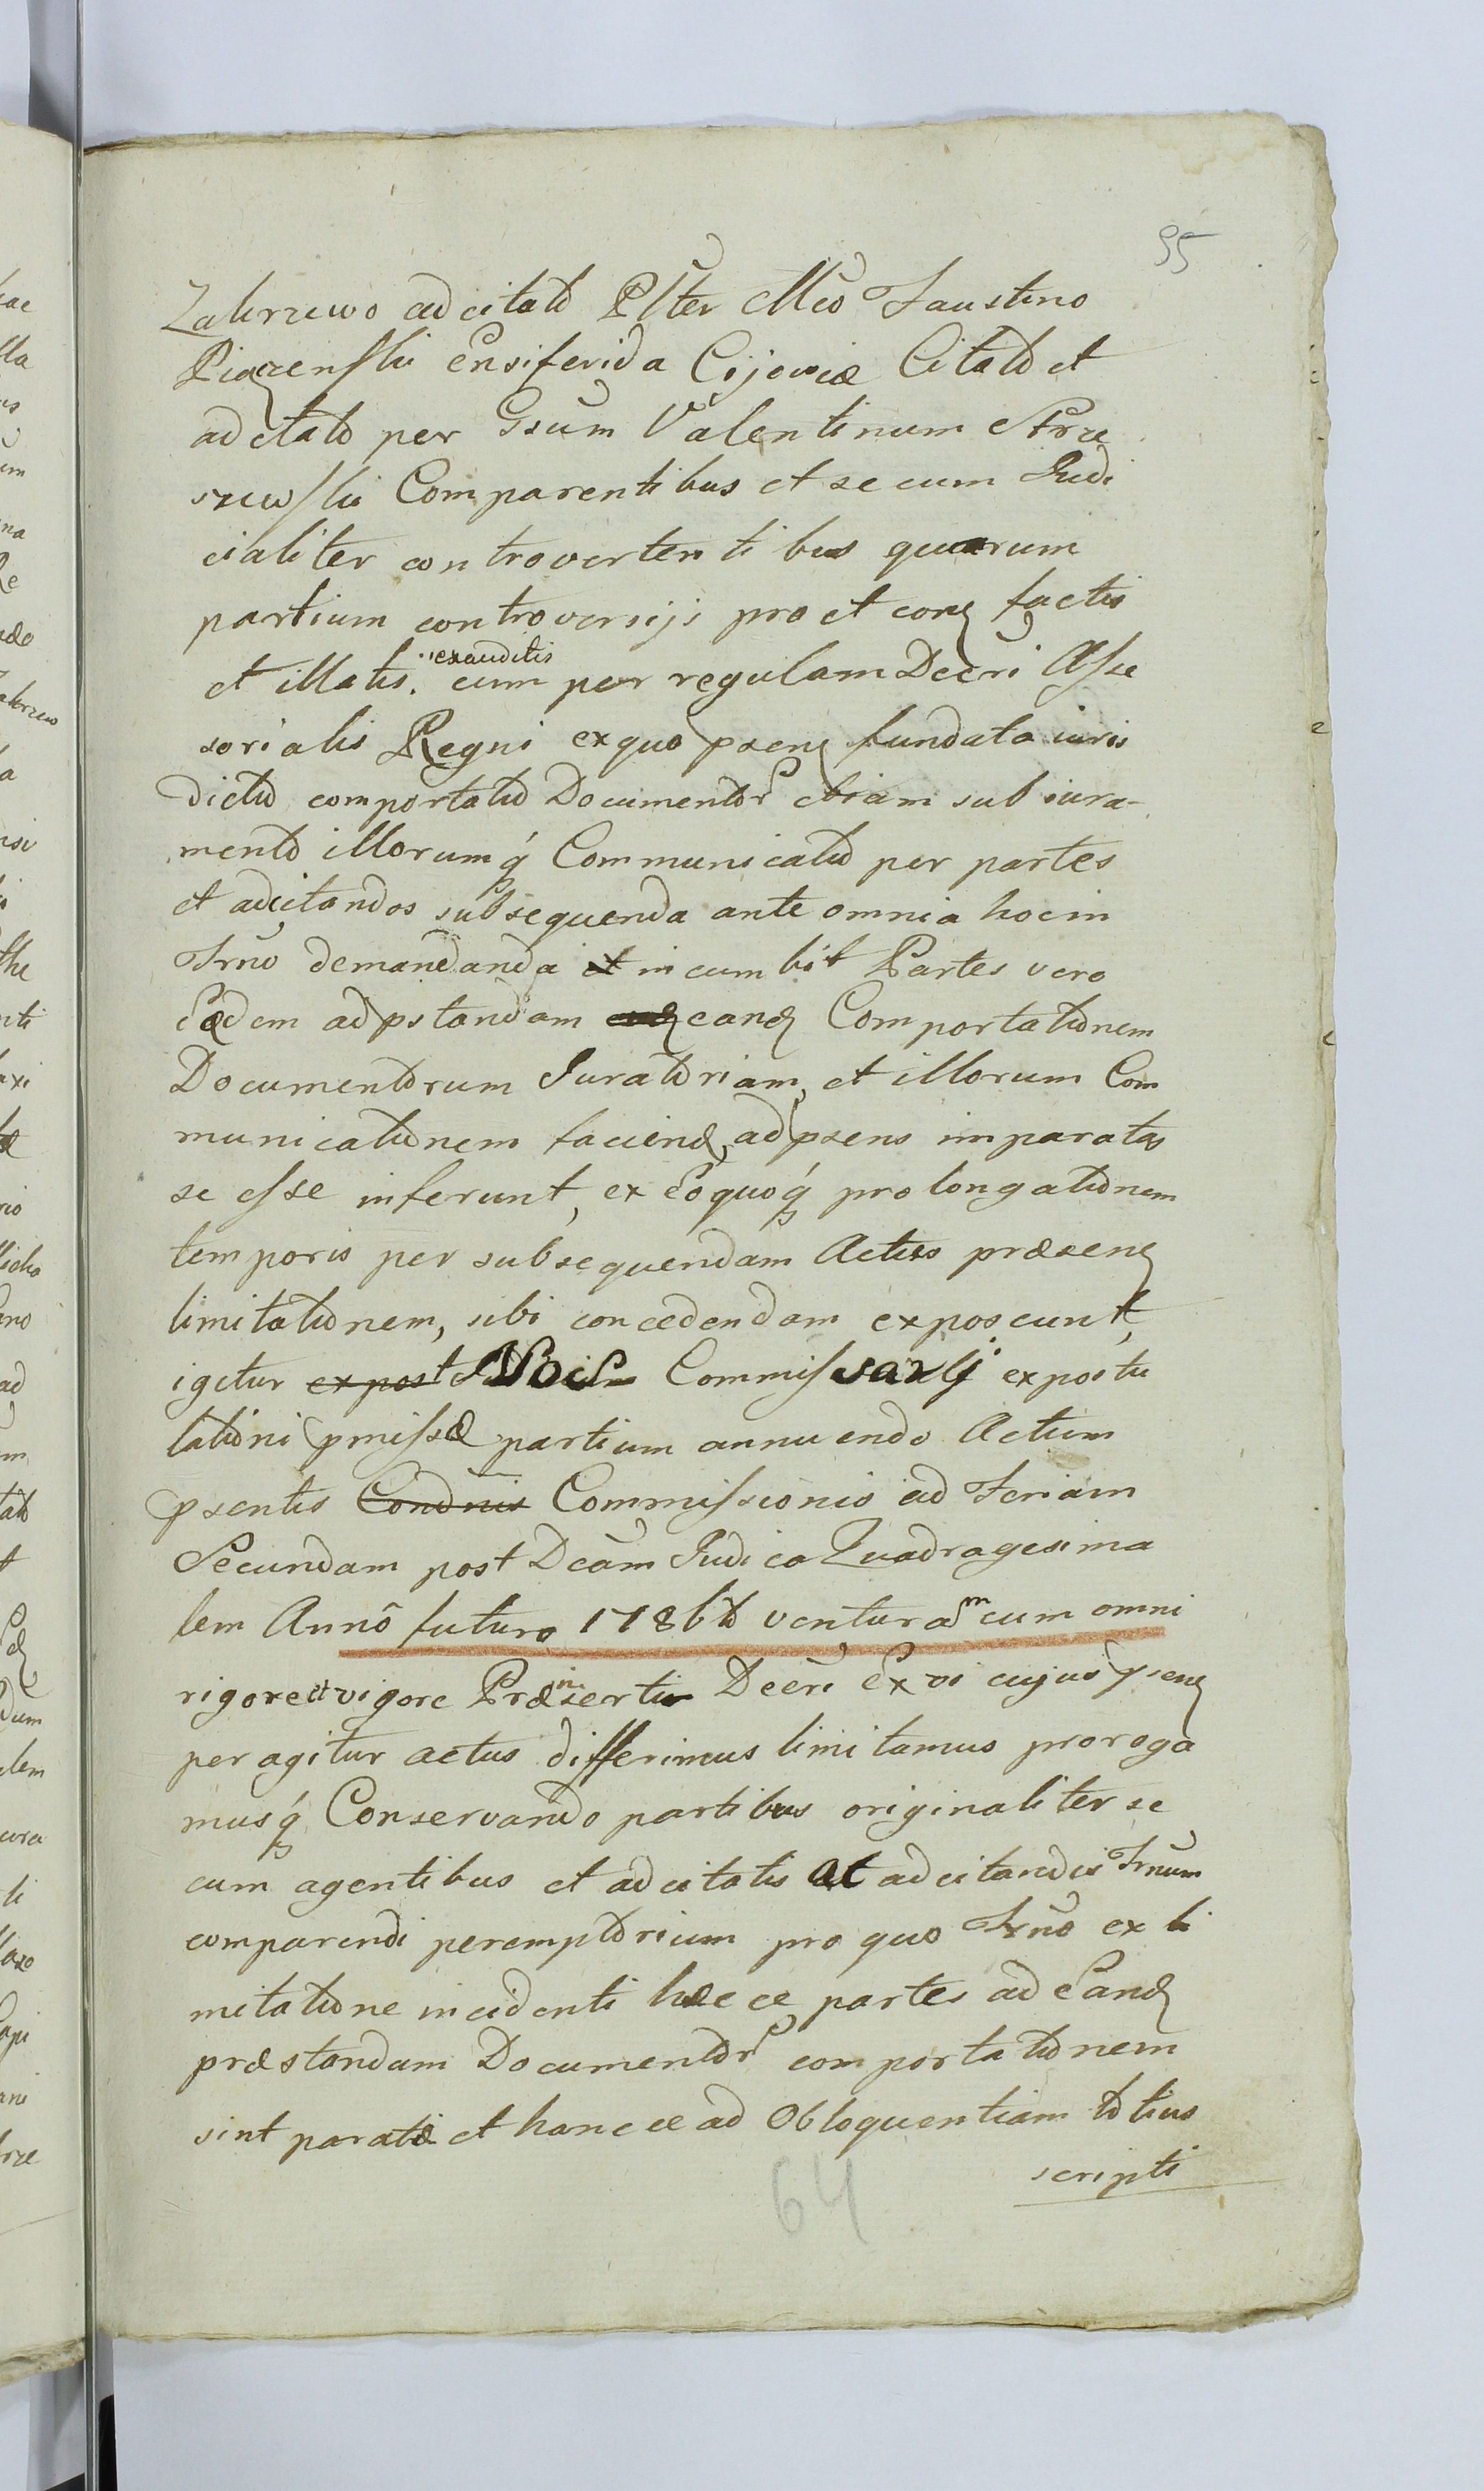 55
Zakrzewo adcitato Pltēr Mēo Faustino
Piaczenski Ensiferida Cijoviæ Citato et
adcitato per Gsūm Valentinum Strze
szewski Comparentibus et secum Judi
cialiter controvertentibus quarum
partium controversijs pro et con factis
et illatis. exauditis cum per regulam Decri Asse
sorialis Regni ex quo psen fundata iuris
dictio comportatio Documentor etiam sub iura-
mento illorumq́ Communicatio per partes
et adcitandos subsequenda ante omnia hocin
Trnō demandanda incumbit Partes vero
Eædem ad pstandam eand Comportationem
Documentorum Juratoriam, et illorum Com
municationem faciend, ad psens imparatas
se esse inferunt, ex Eo quoq́ prolongationem
temporis per subsequendam Actus præsen
limitationem, sibi concedendam exposcunt,
igitur expost Judicium Commissarij expostu
lationi pmissæ partium annuendo Actum
psentis Condnis Commissionis ad Feriam
Secundam post Dcām Judica Quadragesima
lem Annō futuro 1786to venturam cum omni
rigore et vigore Præinserti Decri Ex vi cujus psen
peragitur actus differimus limitamus proroga
musq́ Conservando partibus originaliter se
cum agentibus et adcitatis ac adcitandis Trnūm
comparendi peremptorium pro quo Trnō ex li
mitatione incidenti hæcce partes ad Eand
præstandam Documentor comportationem
sint paratæ et hancce ad Obloquentiam totius
scripti
64